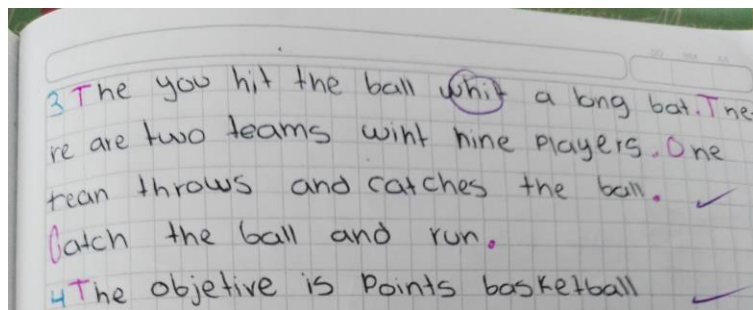 3 The you hit the ball whit a long bat. The
re are two teams wiht nine players. One
tean throws and catches the ball.
Catch the ball and run.
4 The objetive is Points basketball